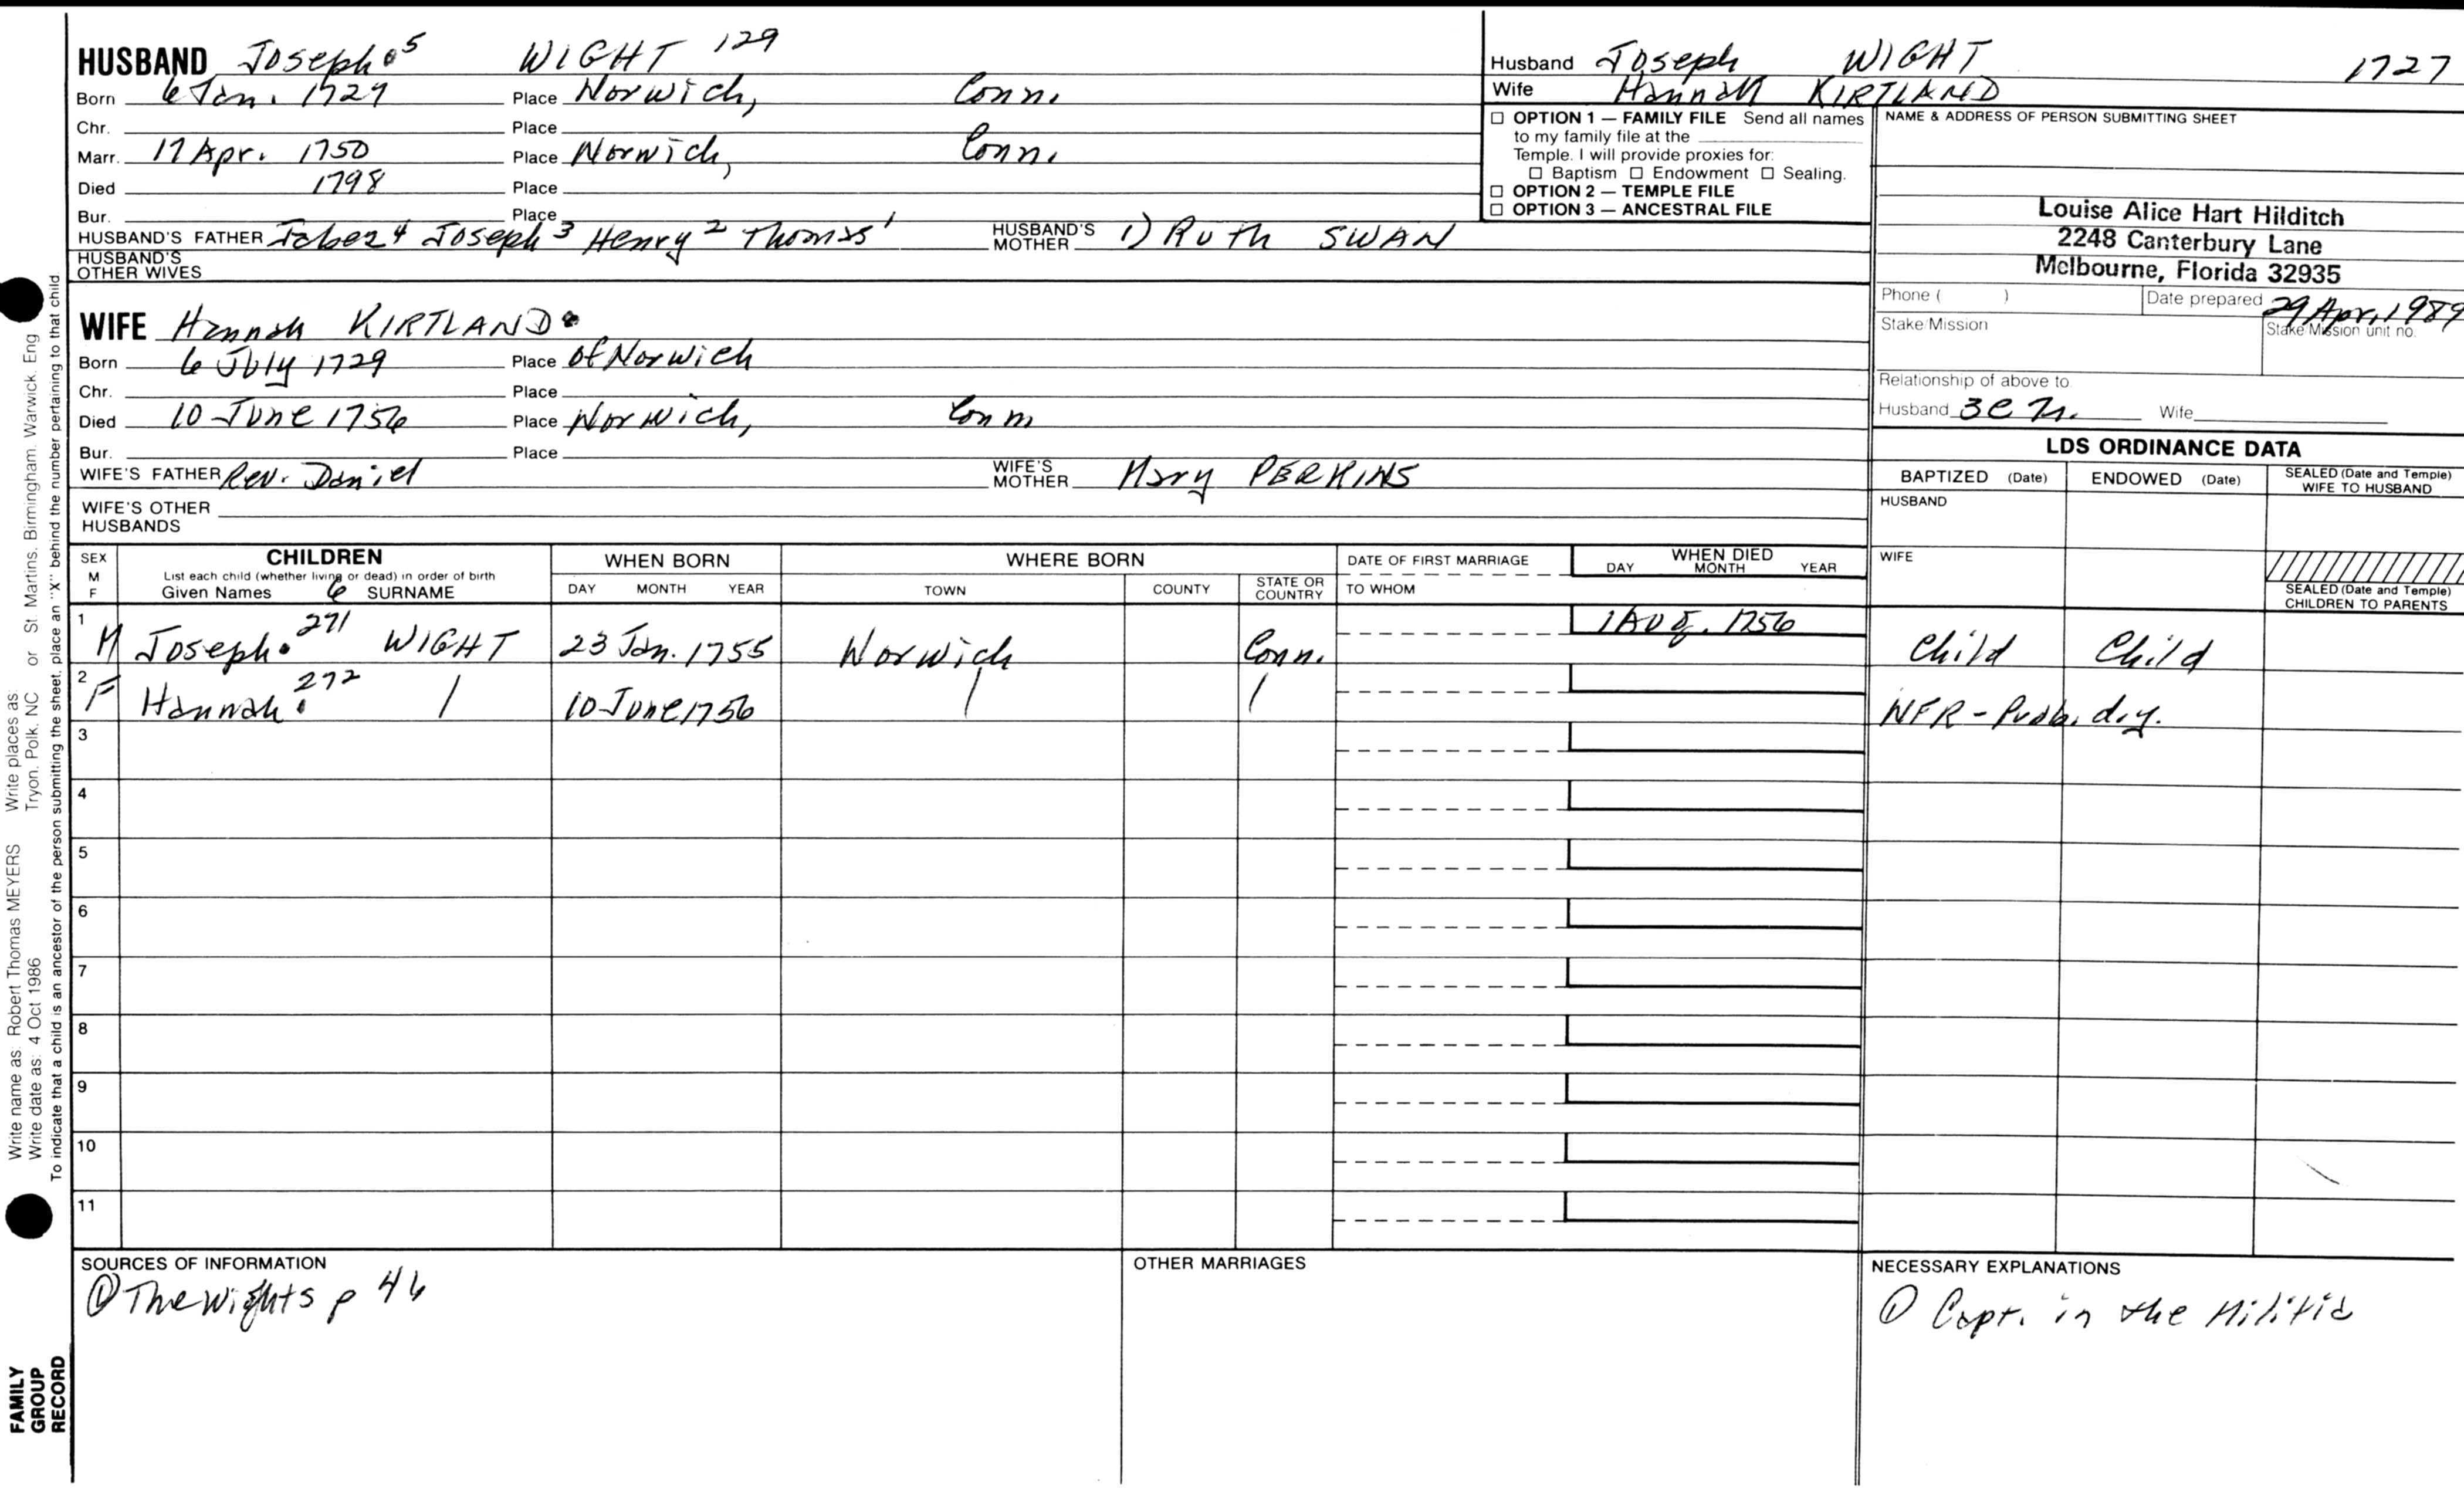 HUSBAND Joseph 5 WIGHT 129
Born 6 Jan. 1727 Place Norwich, Conn.
Chr. Place
Marr. 17 Apr. 1750 Place Norwich, Conn.
Died 1798 Place
Bur. Place
HUSBAND'S FATHER Jabez 4 Joseph 3 Henry 2 Thomas 1 HUSBAND'S MOTHER 1) Ruth SWAN
HUSBAND'S OTHER WIVES
Husband Joseph WIGHT 1727
Wife Hannah KIRTLAND
☐ OPTION 1 — FAMILY FILE Send all names
to my family file at the
Temple. I will provide proxies for:
☐ Baptism ☐ Endowment ☐ Sealing.
☐ OPTION 2 — TEMPLE FILE
☐ OPTION 3 — ANCESTRAL FILE
NAME & ADDRESS OF PERSON SUBMITTING SHEET
Louise Alice Hart Hilditch
2248 Canterbury Lane
Melbourne, Florida 32935
Phone ( ) Date prepared 29 Apr. 1989
Stake/Mission Stake/Mission unit no.
Relationship of above to
Husband 3C Wife
WIFE Hannah KIRTLAND
Born 6 July 1729 Place of Norwich
Chr. Place
Died 10 June 1756 Place Norwich, Conn
Bur. Place
WIFE'S FATHER Rev. Daniel WIFE'S MOTHER Mary PERKINS
WIFE'S OTHER HUSBANDS
LDS ORDINANCE DATA
BAPTIZED (Date) ENDOWED (Date) SEALED (Date and Temple) WIFE TO HUSBAND
HUSBAND
WIFE
SEALED (Date and Temple) CHILDREN TO PARENTS
SEX M F
CHILDREN
List each child (whether living or dead) in order of birth
Given Names 6 SURNAME
WHEN BORN
DAY MONTH YEAR
WHERE BORN
TOWN COUNTY STATE OR COUNTRY
DATE OF FIRST MARRIAGE
TO WHOM
WHEN DIED
DAY MONTH YEAR
1 M Joseph 271 WIGHT 23 Jan. 1755 Norwich Conn. 1 Aug. 1756 Child Child
2 F Hannah 272 / 10 June 1756 / / NFR - Prob. d.y.
3
4
5
6
7
8
9
10
11
SOURCES OF INFORMATION
① The Wights p 46
OTHER MARRIAGES
NECESSARY EXPLANATIONS
① Capt. in the Militia
Write name as: Robert Thomas MEYERS Write places as Tryon, Polk, NC or St. Martins, Birmingham, Warwick, Eng
Write date as: 4 Oct 1986
To indicate that a child is an ancestor of the person submitting the sheet, place an "X" behind the number pertaining to that child
FAMILY
GROUP
RECORD